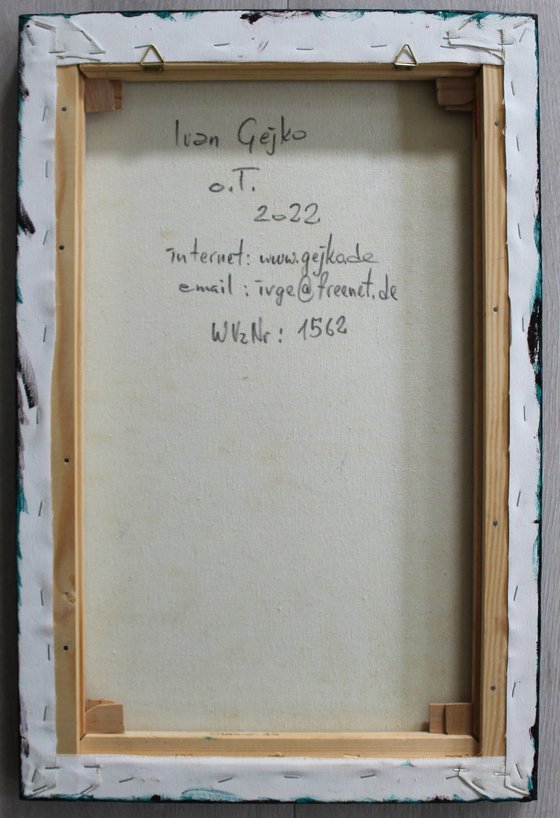 Ivan Gejko
o.T.
2022
internet: www.gejko.de
email: ivge@freenet.de
WVzNr: 1562